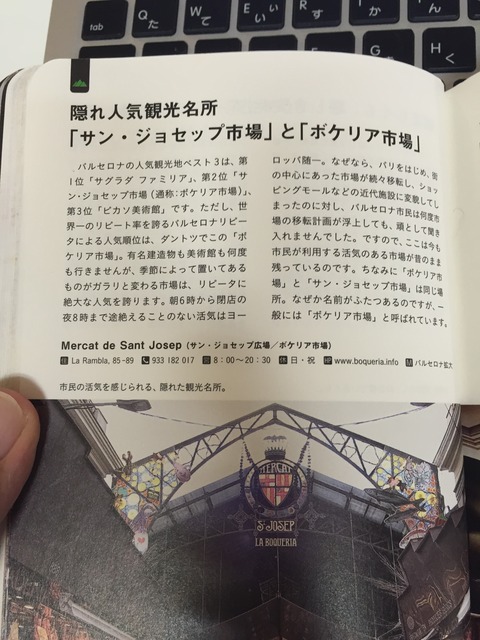 tab
Q
た
W
て
E
い
ぃ
R
す
T
か
I
ん
G
き
H
く
隠れ人気観光名所
「サン・ジョセップ市場」と「ボケリア市場」
バルセロナの人気観光地ベスト3は、第
1位「サグラダ ファミリア」、第2位「サ
ン・ジョセップ市場（通称：ボケリア市場）」、
第3位「ピカソ美術館」です。ただし、世
界一のリピート率を誇るバルセロナリピー
タによる人気順位は、ダントツでこの「ボ
ケリア市場」。有名建造物も美術館も何度
も行きませんが、季節によって置いてある
ものがガラリと変わる市場は、リピータに
絶大な人気を誇ります。朝6時から閉店の
夜8時まで途絶えることのない活気はヨー
ロッパ随一。なぜなら、パリをはじめ、街
の中心にあった市場が続々移転し、ショッ
ピングモールなどの近代施設に変貌してし
まったのに対し、バルセロナ市民は何度市
場の移転計画が浮上しても、頑として聞き
入れませんでした。ですので、ここは今も
市民が利用する活気のある市場が昔のまま
残っているのです。ちなみに「ボケリア市
場」と「サン・ジョセップ市場」は同じ場
所。なぜか名前がふたつあるのですが、一
般には「ボケリア市場」と呼ばれています。
Mercat de Sant Josep（サン・ジョセップ広場／ボケリア市場）
住 La Rambla, 85-89 933 182 017 8：00〜20：30 休 日・祝 HP www.boqueria.info M バルセロナ拡大
市民の活気を感じられる、隠れた観光名所。
MERCAT
St JOSEP
LA BOQUERIA